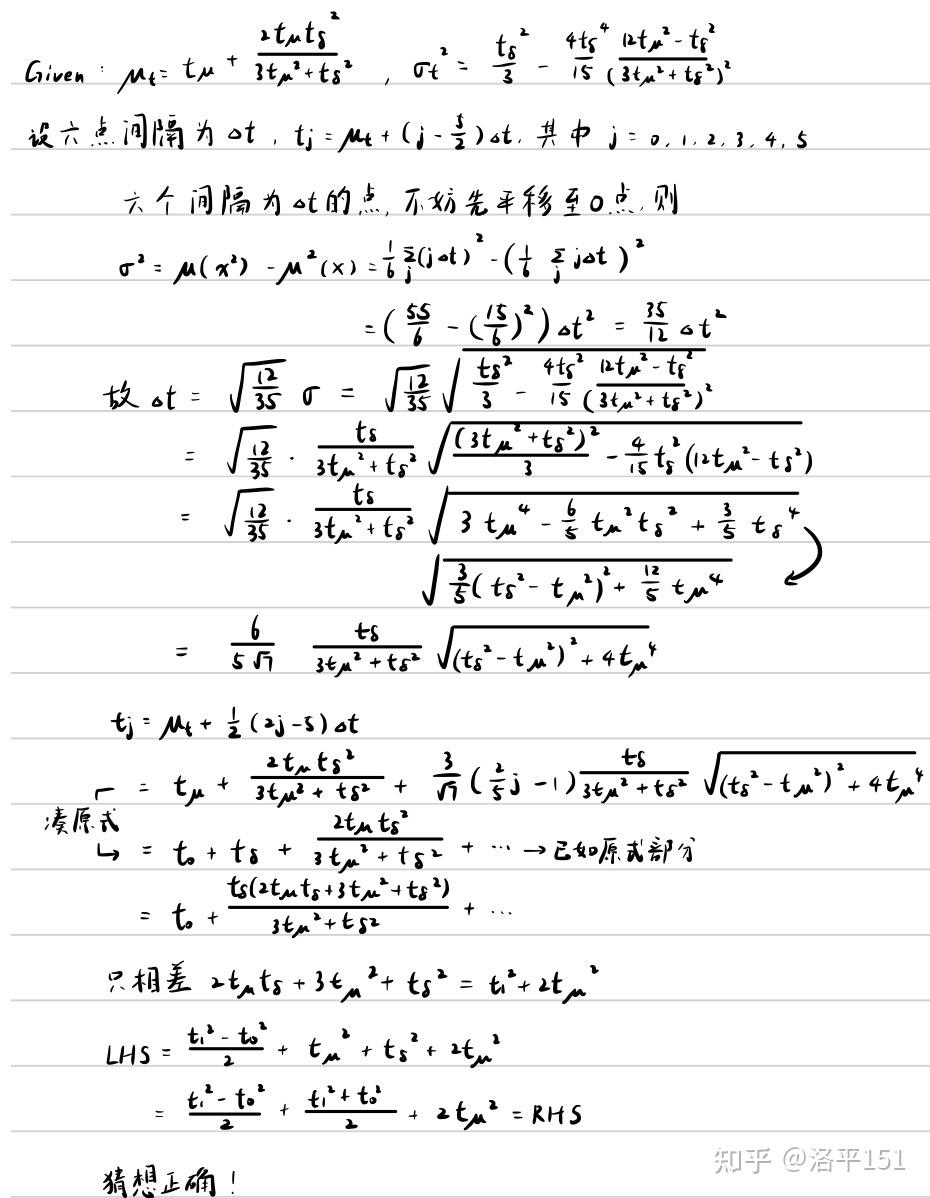 Given: μ_t = t_μ + \frac{2t_μ t_δ^2}{3t_μ^2 + t_δ^2} , σ_t^2 = \frac{t_δ^2}{3} - \frac{4t_δ^4}{15} \frac{12t_μ^2 - t_δ^2}{(3t_μ^2 + t_δ^2)^2}
设六点间隔为Δt , t_j = μ_t + (j - \frac{5}{2})Δt, 其中 j = 0, 1, 2, 3, 4, 5
六个间隔为Δt的点, 不妨先平移至0点, 则
σ^2 = μ(x^2) - μ^2(x) = \frac{1}{6} \sum_j (jΔt)^2 - (\frac{1}{6} \sum_j jΔt)^2
= (\frac{55}{6} - (\frac{15}{6})^2) Δt^2 = \frac{35}{12} Δt^2
故 Δt = \sqrt{\frac{12}{35}} σ = \sqrt{\frac{12}{35}} \sqrt{\frac{t_δ^2}{3} - \frac{4t_δ^2}{15} \frac{12t_μ^2 - t_δ^2}{(3t_μ^2 + t_δ^2)^2}}
= \sqrt{\frac{12}{35}} · \frac{t_δ}{3t_μ^2 + t_δ^2} \sqrt{\frac{(3t_μ^2 + t_δ^2)^2}{3} - \frac{4}{15} t_δ^2 (12t_μ^2 - t_δ^2)}
= \sqrt{\frac{12}{35}} · \frac{t_δ}{3t_μ^2 + t_δ^2} \sqrt{3 t_μ^4 - \frac{6}{5} t_μ^2 t_δ^2 + \frac{3}{5} t_δ^4}
\sqrt{\frac{3}{5}(t_δ^2 - t_μ^2)^2 + \frac{12}{5} t_μ^4}
= \frac{6}{5\sqrt{7}} \frac{t_δ}{3t_μ^2 + t_δ^2} \sqrt{(t_δ^2 - t_μ^2)^2 + 4t_μ^4}
t_j = μ_t + \frac{1}{2}(2j-5)Δt
= t_μ + \frac{2t_μ t_δ^2}{3t_μ^2 + t_δ^2} + \frac{3}{\sqrt{7}} (\frac{2}{5}j - 1) \frac{t_δ}{3t_μ^2 + t_δ^2} \sqrt{(t_δ^2 - t_μ^2)^2 + 4t_μ^4}
凑原式
= t_0 + t_δ + \frac{2t_μ t_δ^2}{3t_μ^2 + t_δ^2} + ... → 已如原式部分
= t_0 + \frac{t_δ(2t_μ t_δ + 3t_μ^2 + t_δ^2)}{3t_μ^2 + t_δ^2} + ...
只相差 2t_μ t_δ + 3t_μ^2 + t_δ^2 = t_1^2 + 2t_μ^2
LHS = \frac{t_1^2 - t_0^2}{2} + t_μ^2 + t_δ^2 + 2t_μ^2
= \frac{t_1^2 - t_0^2}{2} + \frac{t_1^2 + t_0^2}{2} + 2t_μ^2 = RHS
猜想正确!
知乎 @洛平151